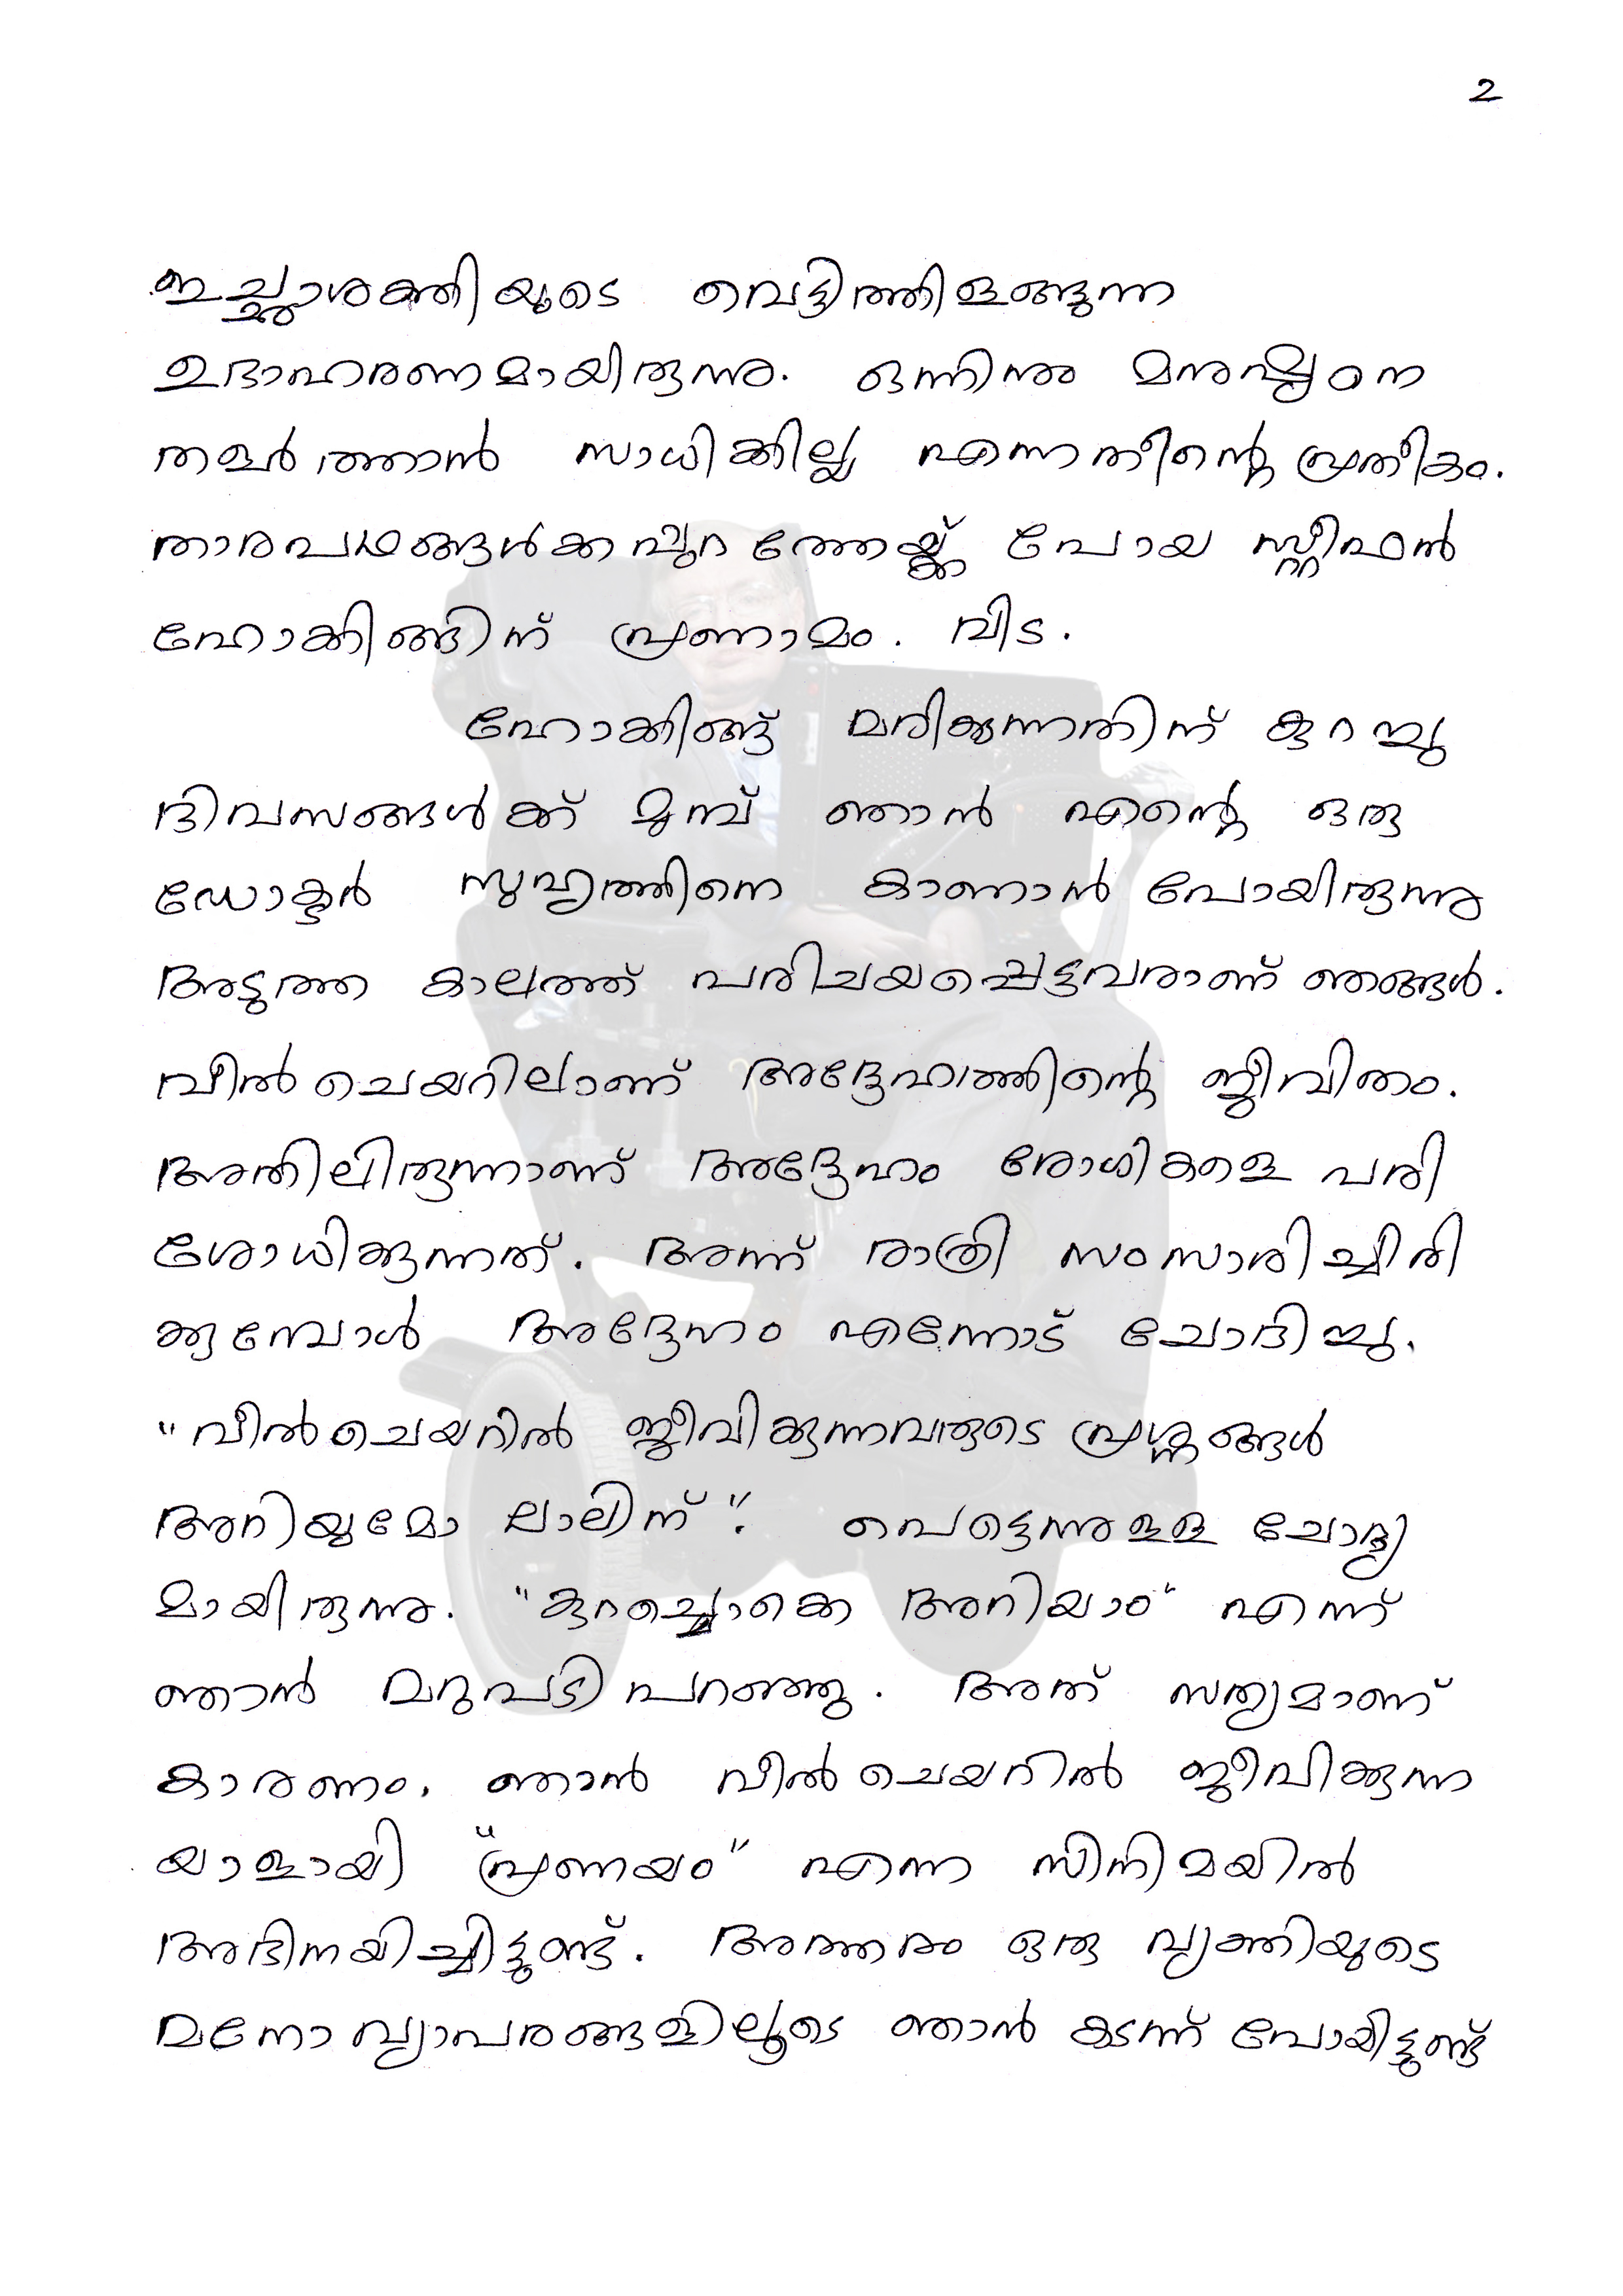 2
ഇച്ഛാശക്തിയുടെ വെട്ടിത്തിളങ്ങുന്ന
ഉദാഹരണമായിരുന്നു. ഒന്നിനും മനുഷ്യനെ
തളർത്താൻ സാധിക്കില്ല എന്നതിന്റെ പ്രതീകം.
താരപഥങ്ങൾക്കപ്പുറത്തേയ്ക്ക് പോയ സ്റ്റീഫൻ
ഹോക്കിങ്ങിന് പ്രണാമം. വിട.
ഹോക്കിങ്ങ് മരിക്കുന്നതിന് കുറച്ചു
ദിവസങ്ങൾക്ക് മുമ്പ് ഞാൻ എന്റെ ഒരു
ഡോക്ടർ സുഹൃത്തിനെ കാണാൻ പോയിരുന്നു
അടുത്ത കാലത്ത് പരിചയപ്പെട്ടവരാണ് ഞങ്ങൾ.
വീൽ ചെയറിലാണ് അദ്ദേഹത്തിന്റെ ജീവിതം.
അതിലിരുന്നാണ് അദ്ദേഹം രോഗികളെ പരി
ശോധിക്കുന്നത്. അന്ന് രാത്രി സംസാരിച്ചിരി
ക്കുമ്പോൾ അദ്ദേഹം എന്നോട് ചോദിച്ചു.
"വീൽചെയറിൽ ജീവിക്കുന്നവരുടെ പ്രശ്നങ്ങൾ
അറിയുമോ ലാലിന്". പെട്ടെന്നുള്ള ചോദ്യ
മായിരുന്നു. "കുറച്ചൊക്കെ അറിയാം" എന്ന്
ഞാൻ മറുപടി പറഞ്ഞു. അത് സത്യമാണ്
കാരണം, ഞാൻ വീൽ ചെയറിൽ ജീവിക്കുന്ന
യാളായി "പ്രണയം" എന്ന സിനിമയിൽ
അഭിനയിച്ചിട്ടുണ്ട്. അത്തരം ഒരു വ്യക്തിയുടെ
മനോവ്യാപരങ്ങളിലൂടെ ഞാൻ കടന്ന് പോയിട്ടുണ്ട്